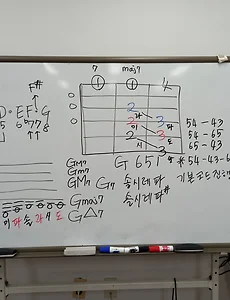 7 maj7
F#
D · E F G
5 6 7 7 8
① ① 4
2 라
2 3
미 파
2 3
시 도
3
54 - 43
54 - 65
65 - 43
GM7
Gm7
GM7 G7
Gmaj7
G△7
G 651
솔시레파
솔시레파#
# 54-43-6
기본코드진행
미 파 솔 라 도